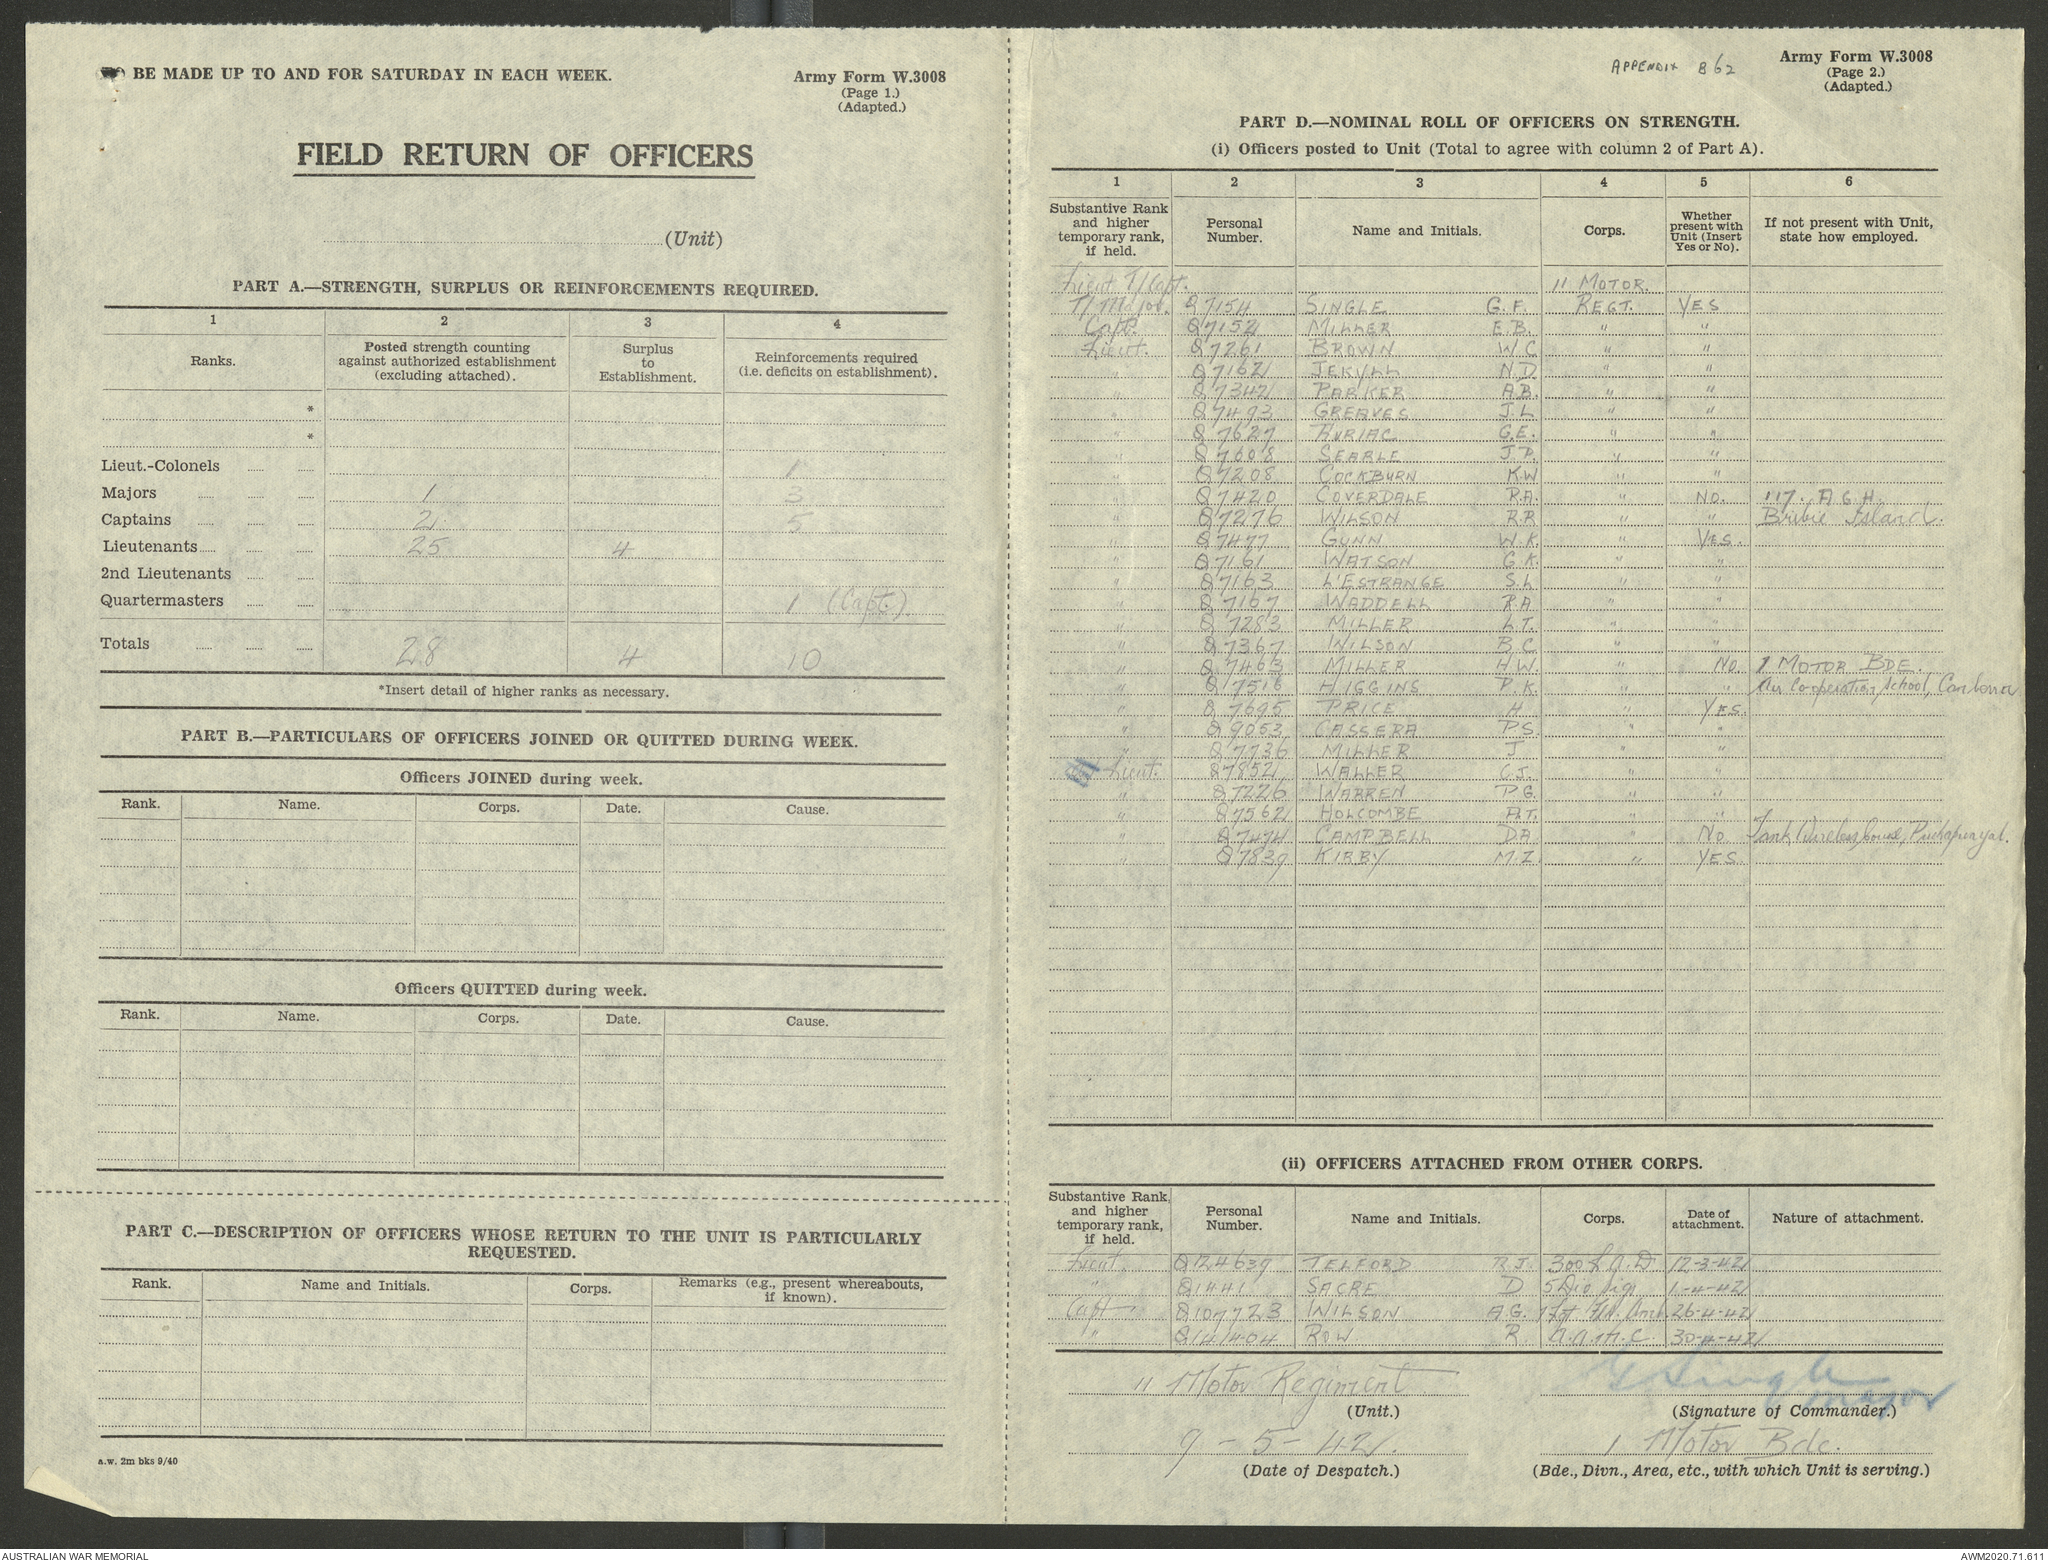 TO BE MADE UP TO AND FOR SATURDAY IN EACH WEEK.
Army Form W.3008
(Page 1.)
(Adapted.)
FIELD RETURN OF OFFICERS
(Unit)
PART A.—STRENGTH, SURPLUS OR REINFORCEMENTS REQUIRED.
1 2 3 4
Ranks. Posted strength counting against authorized establishment (excluding attached). Surplus to Establishment. Reinforcements required (i.e. deficits on establishment).
*
*
Lieut.-Colonels 1
Majors 1 3
Captains 2 5
Lieutenants 25 4
2nd Lieutenants
Quartermasters 1 (Capt.)
Totals 28 4 10
*Insert detail of higher ranks as necessary.
PART B.—PARTICULARS OF OFFICERS JOINED OR QUITTED DURING WEEK.
Officers JOINED during week.
Rank. Name. Corps. Date. Cause.
Officers QUITTED during week.
Rank. Name. Corps. Date. Cause.
PART C.—DESCRIPTION OF OFFICERS WHOSE RETURN TO THE UNIT IS PARTICULARLY
REQUESTED.
Rank. Name and Initials. Corps. Remarks (e.g., present whereabouts, if known).
a.w. 2m bks 9/40
APPENDIX B62
Army Form W.3008
(Page 2.)
(Adapted.)
PART D.—NOMINAL ROLL OF OFFICERS ON STRENGTH.
(i) Officers posted to Unit (Total to agree with column 2 of Part A).
1 2 3 4 5 6
Substantive Rank and higher temporary rank, if held. Personal Number. Name and Initials. Corps. Whether present with Unit (Insert Yes or No). If not present with Unit, state how employed.
Lieut T/Capt. 11 MOTOR
T/Major. Q7154 SINGLE G.F. REGT. YES
Capt. Q7152 MILLER E.B. " "
Lieut. Q7261 BROWN W.C " "
" Q7162 JEKYLL N.D. " "
" Q7342 PARKER A.B. " "
" Q7493 GREAVES J.L " "
" Q7627 AURIAC G.E. " "
" Q7608 SEARLE J.P. " "
" Q7208 COCKBURN K.W " "
" Q7420 COVERDALE R.A. " NO. 117. A G H.
" Q7276 WILSON R.R " " Bribie Island.
" Q7477 GUNN W.K. " YES.
" Q7161 WATSON G.K. " "
" Q7163 L'ESTRANGE S.L " "
" Q7167 WADDELL R.A " "
" Q7283 MILLER L.T. " "
" Q7367 WILSON B.C. " "
" Q7463 MILLER H.W. " NO. 1 MOTOR BDE.
" Q7516 HIGGINS P.K. " " Air Cooperation School, Canberra
" Q7695 PRICE H. " YES.
" Q9053 CASSERA P.S. " "
" Q7736 MILLER J " "
Lieut. Q7852 WALLER C.J. " "
" Q7226 WARREN P.G. " "
" Q7562 HOLCOMBE A.T. " "
" Q7474 CAMPBELL D.A. " NO. Tank Wireless Course, Puckapunyal.
" Q7839 KIRBY M.I. " YES.
(ii) OFFICERS ATTACHED FROM OTHER CORPS.
Substantive Rank, and higher temporary rank, if held. Personal Number. Name and Initials. Corps. Date of attachment. Nature of attachment.
Lieut. Q124639 TELFORD R.J. 300 L.A.D. 12-3-42
" Q1441 SACRE D 5 Div Sigs 1-4-42
Capt Q107723 WILSON A.G. Fld. Amb. 26-4-42
" Q141404 ROW R. A.A.M.C. 30-4-42
11 Motor Regiment
(Unit.)
G Single
Major
(Signature of Commander.)
9-5-42.
(Date of Despatch.)
1 Motor Bde.
(Bde., Divn., Area, etc., with which Unit is serving.)
AUSTRALIAN WAR MEMORIAL
AWM2020.71.611